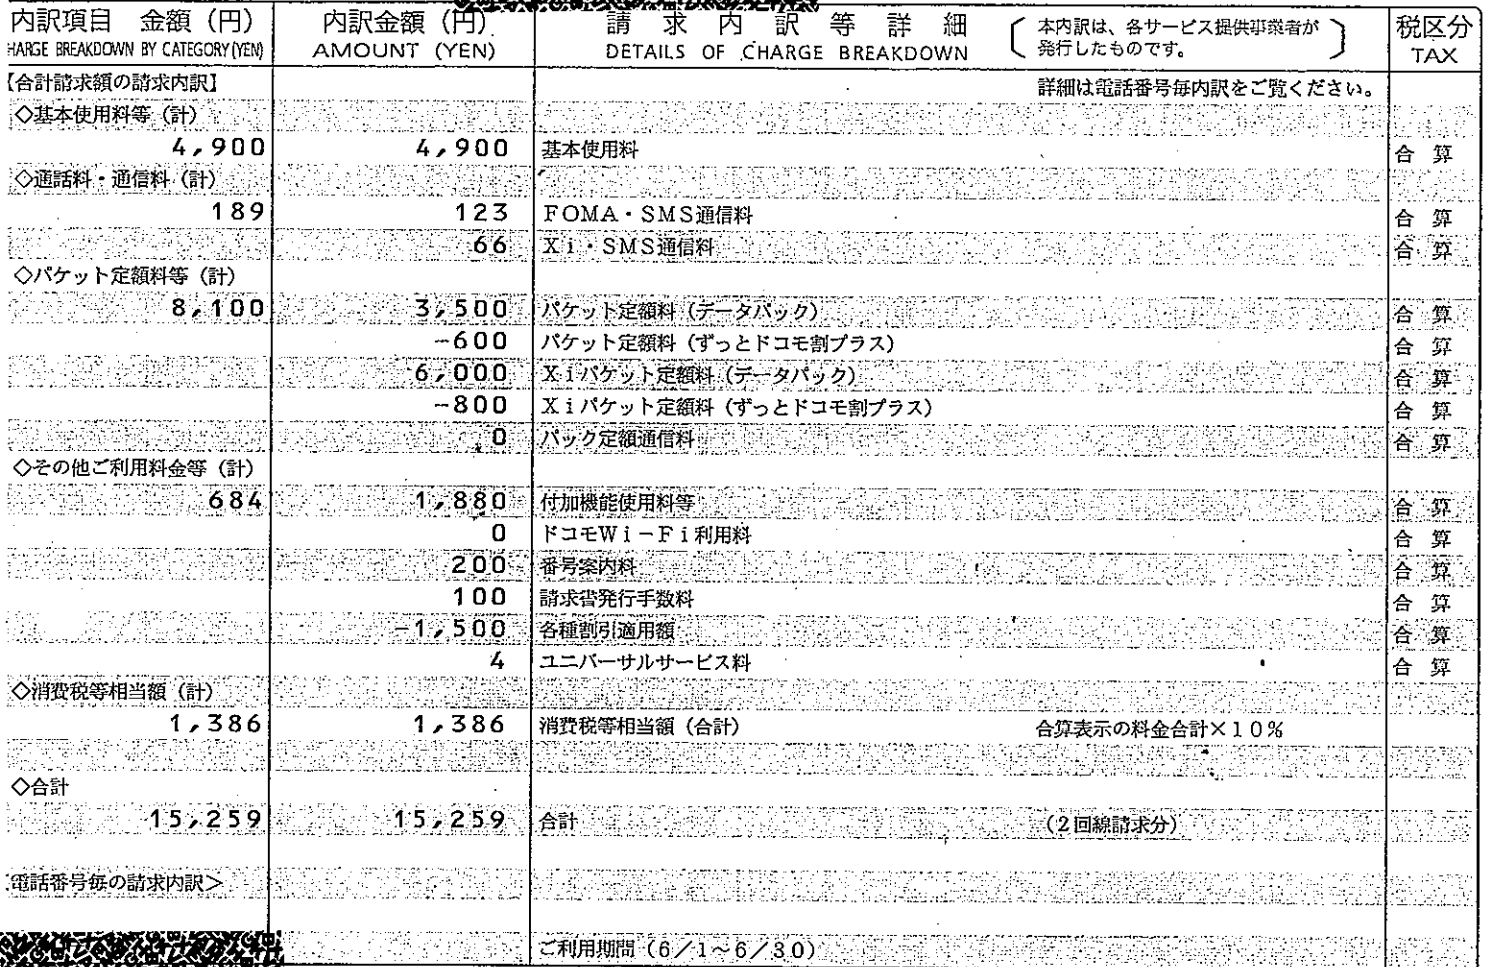 内訳項目 金額(円) 内訳金額(円) 請求内訳等詳細 本内訳は、各サービス提供事業者が 税区分
HARGE BREAKDOWN BY CATEGORY(YEN) AMOUNT (YEN) DETAILS OF CHARGE BREAKDOWN 発行したものです。 TAX
【合計請求額の請求内訳】 詳細は電話番号毎内訳をご覧ください。
◇基本使用料等(計)
4,900 4,900 基本使用料 合算
◇通話料・通信料(計)
189 123 FOMA・SMS通信料 合算
66 Xi・SMS通信料 合算
◇パケット定額料等(計)
8,100 3,500 パケット定額料(データパック) 合算
-600 パケット定額料(ずっとドコモ割プラス) 合算
6,000 Xiパケット定額料(データパック) 合算
-800 Xiパケット定額料(ずっとドコモ割プラス) 合算
0 パック定額通信料 合算
◇その他ご利用料金等(計)
684 1,880 付加機能使用料等 合算
0 ドコモWi-Fi利用料 合算
200 番号案内料 合算
100 請求書発行手数料 合算
-1,500 各種割引適用額 合算
4 ユニバーサルサービス料 合算
◇消費税等相当額(計)
1,386 1,386 消費税等相当額(合計) 合算表示の料金合計×10%
◇合計
15,259 15,259 合計 (2回線請求分)
電話番号毎の請求内訳>
ご利用期間(6/1~6/30)